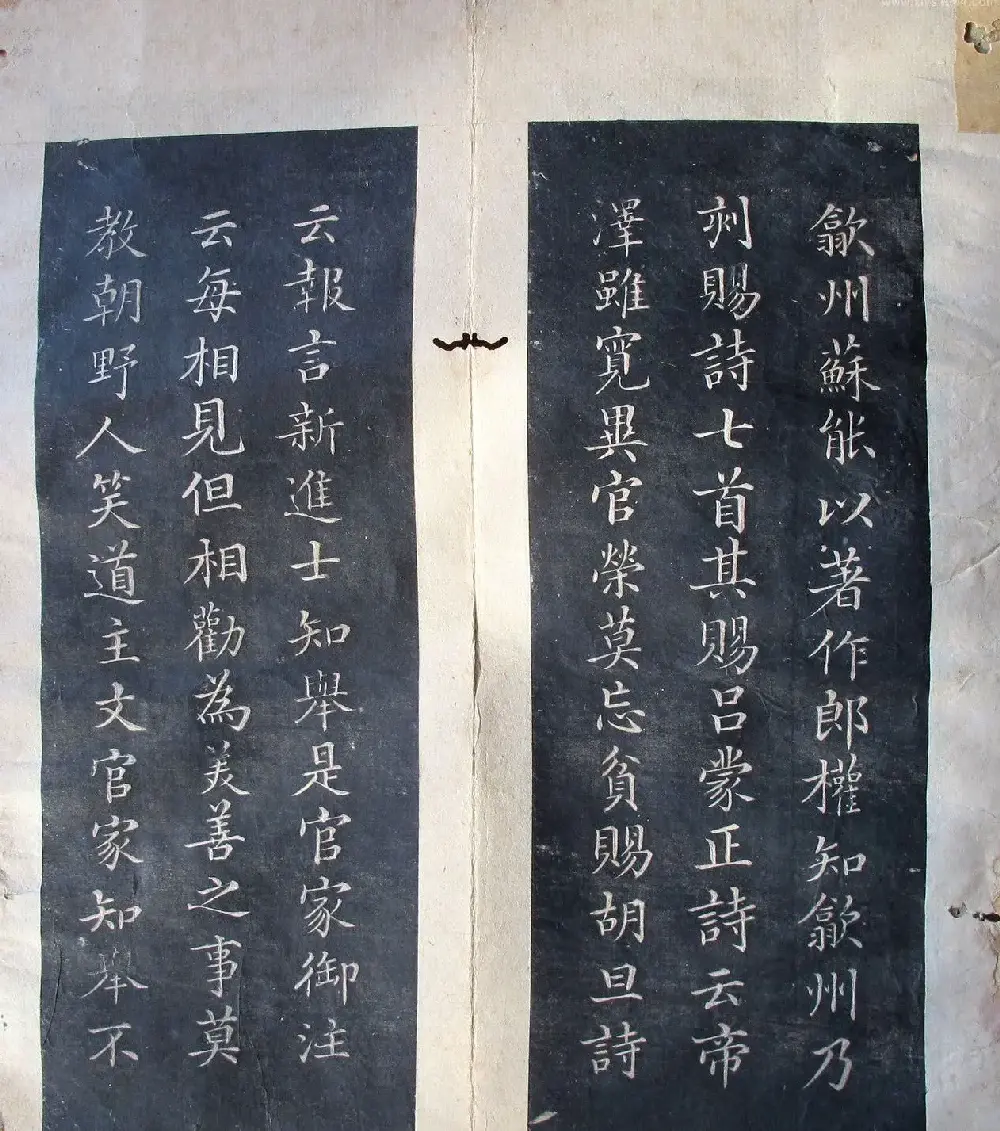 歙州蘇能以著作郎權知歙州乃
刺賜詩七首其賜呂蒙正詩云帝
澤雖寬異官榮莫忘貧賜胡旦詩
云報言新進士知舉是官家御注
云每相見但相勸為美善之事莫
教朝野人笑道主文官家知舉不